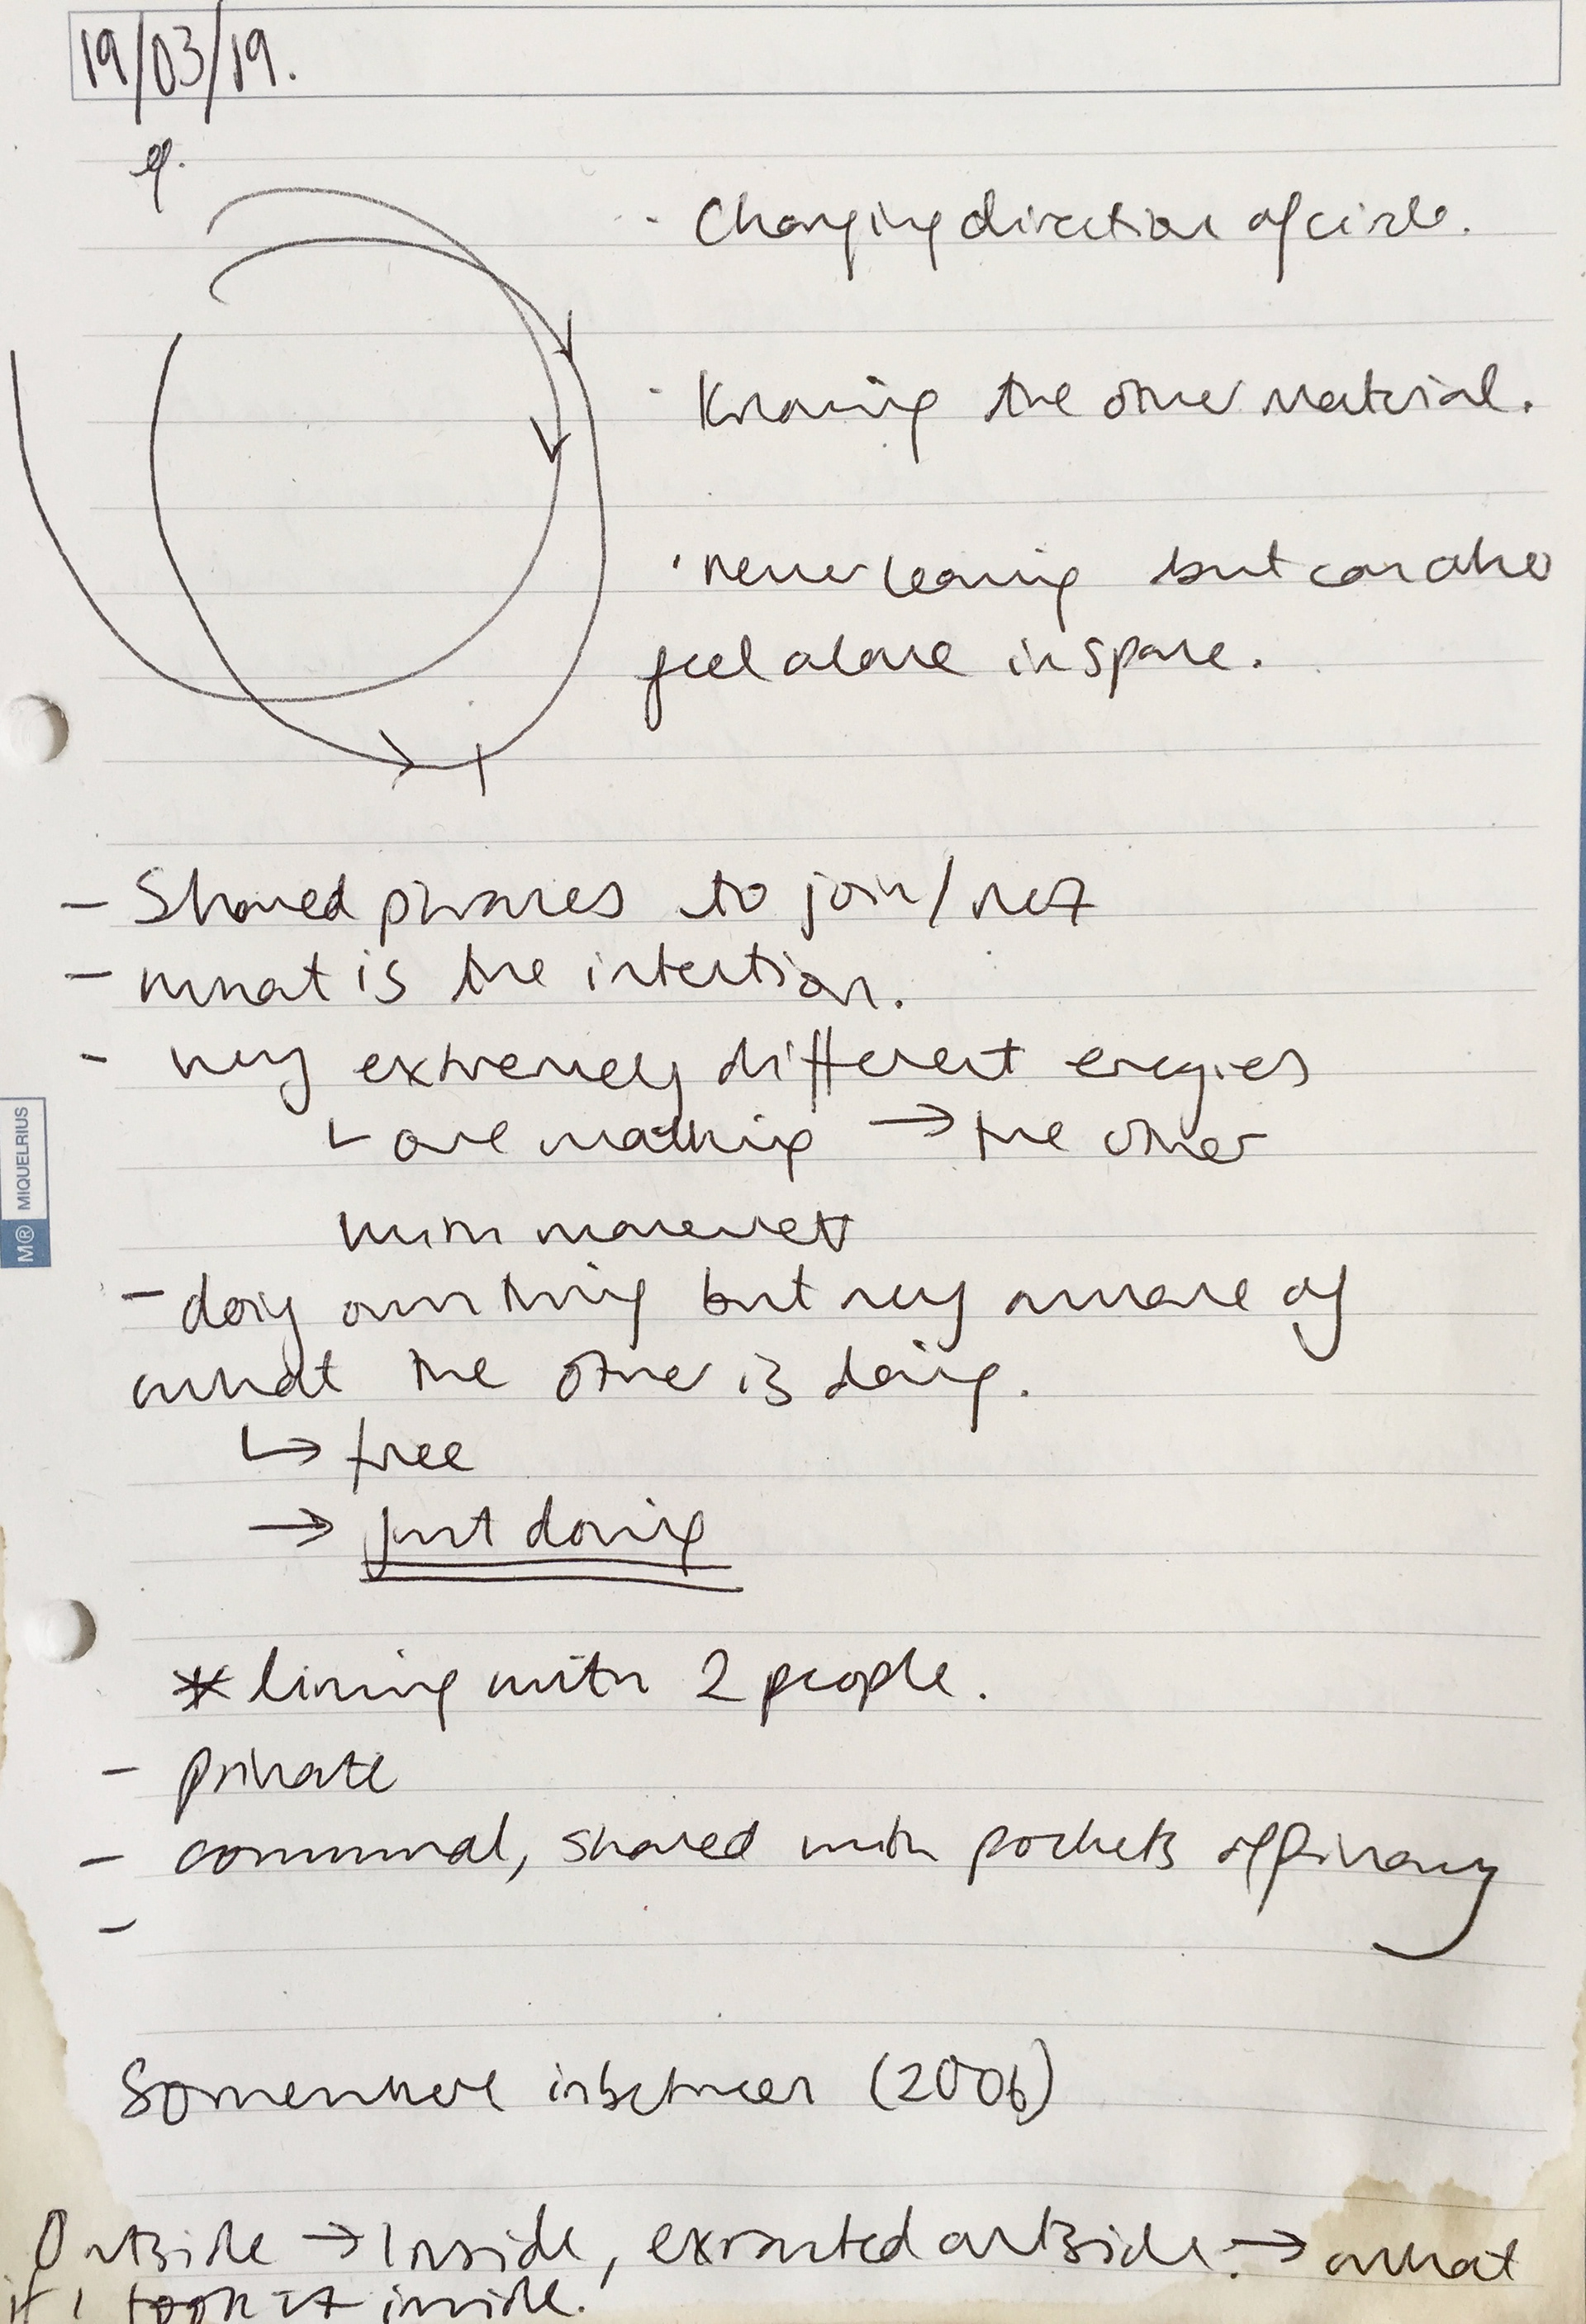 19/03/19.
eg.
· Changing direction of circle.
· Knowing the other material.
· never leaving but can also
feel alone in space.
- Shared phrases to join/not
- what is the intention.
- very extremely different energies
one walking → the other
with movement
- doing own thing but very aware of
what the other is doing.
↳ free
→ just doing
* living with 2 people.
- private
- communal, shared with pockets of privacy
-
MIQUELRIUS
Somewhere inbetween (2006)
Outside → Inside, existed outside. → what
if I took it inside.